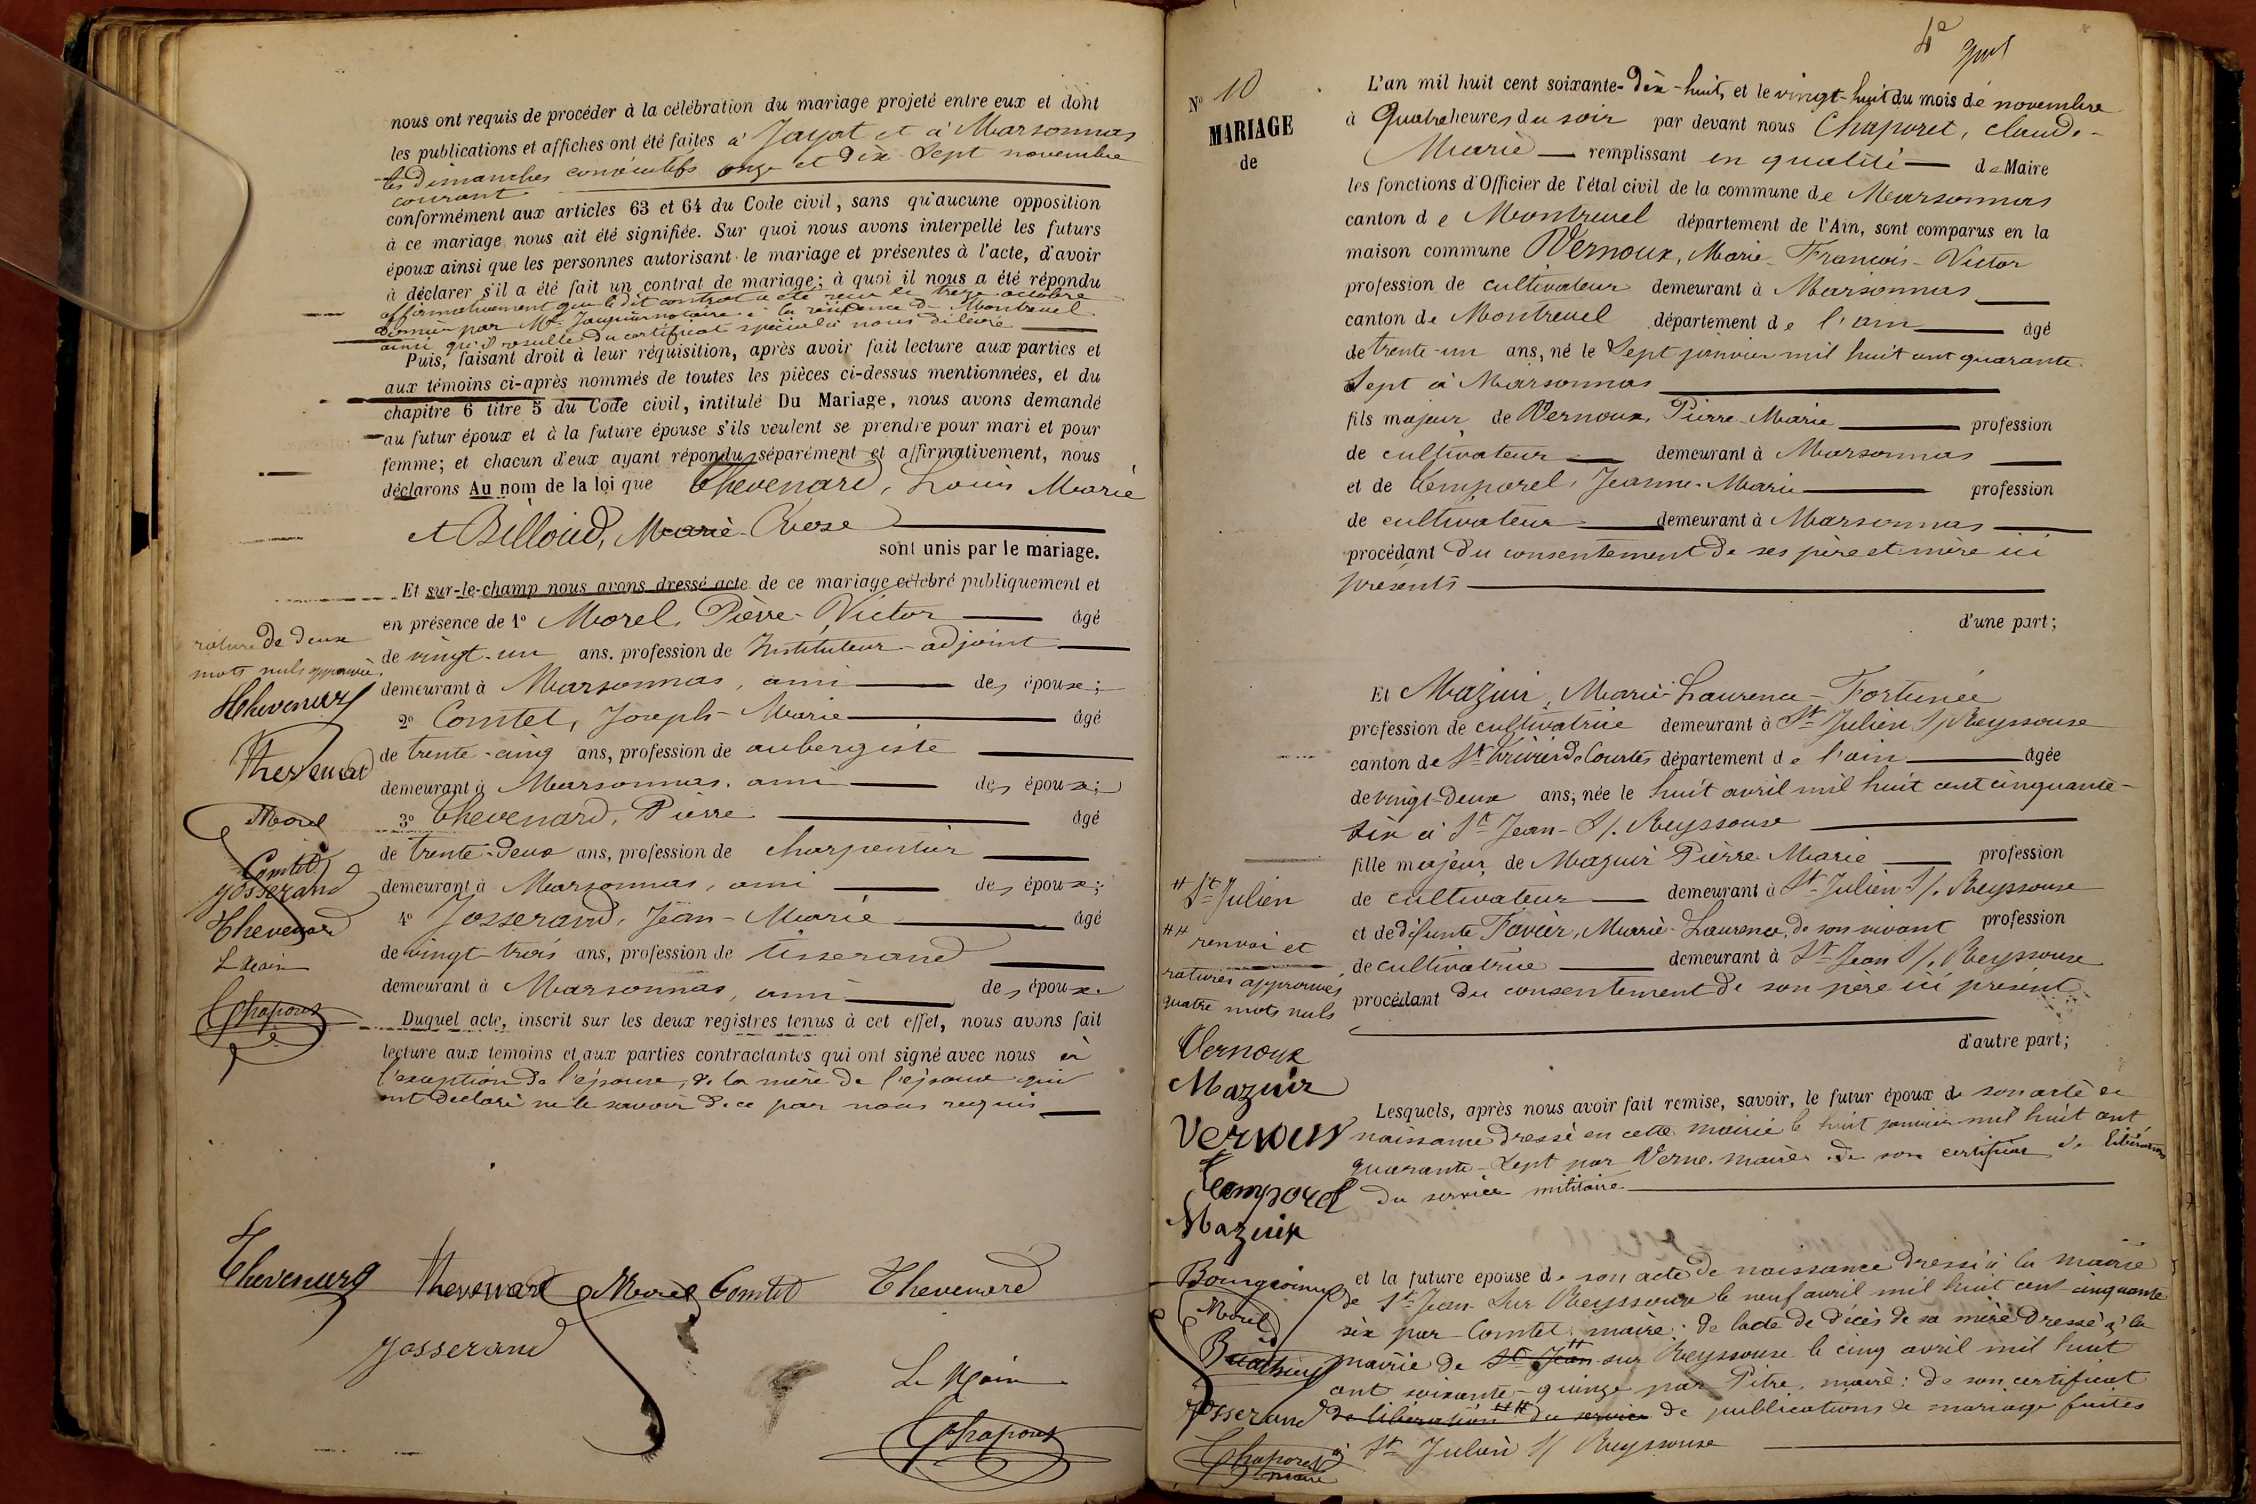 nous ont requis de procéder à la célébration du mariage projeté entre eux et dont
les publications et affiches ont été faites à Jayat et à Marsonnas
les dimanches consécutifs onze et dix-sept novembre
courant
conformément aux articles 63 et 64 du Code civil, sans qu'aucune opposition
à ce mariage nous ait été signifiée. Sur quoi nous avons interpellé les futurs
époux ainsi que les personnes autorisant le mariage et présentes à l'acte, d'avoir
à déclarer s'il a été fait un contrat de mariage; à quoi il nous a été répondu
affirmativement que le dit contrat a été reçu le treize octobre
dernier par Me notaire à la résidence de Montrevel
ainsi qu'il résulte du certificat spécial à nous délivré
Puis, faisant droit à leur réquisition, après avoir fait lecture aux parties et
aux témoins ci-après nommés de toutes les pièces ci-dessus mentionnées, et du
chapitre 6 titre 5 du Code civil, intitulé Du Mariage, nous avons demandé
au futur époux et à la future épouse s'ils veulent se prendre pour mari et pour
femme; et chacun d'eux ayant répondu séparément et affirmativement, nous
déclarons Au nom de la loi que Thevenard, Louis Marie
et Billoud, Marie-Rose
sont unis par le mariage.
Et sur-le-champ nous avons dressé acte de ce mariage célébré publiquement et
en présence de 1° Morel, Pierre-Victor âgé
de vingt-un ans, profession de Instituteur-adjoint
demeurant à Marsonnas, ami des époux;
2° Comtet, Joseph-Marie âgé
de trente-cinq ans, profession de aubergiste
demeurant à Marsonnas, ami des époux;
3° Thevenard, Pierre âgé
de trente-deux ans, profession de charpentier
demeurant à Marsonnas, ami des époux;
4° Josserand, Jean-Marie âgé
de vingt-trois ans, profession de tisserand
demeurant à Marsonnas, ami des époux.
Duquel acte, inscrit sur les deux registres tenus à cet effet, nous avons fait
lecture aux témoins et aux parties contractantes qui ont signé avec nous à
l'exception de l'épouse, de la mère de l'épouse qui
ont déclaré ne le savoir de ce par nous requis
rature de deux
mots nuls approuvée
Thevenard
Thevenard
Morel
Comtet
Josserand
Thevenard
Le Maire
Chaporet
Thevenard Thevenard Morel Comtet Thevenard
Josserand
Le Maire
Chaporet
4e
N° 10
MARIAGE
de
L'an mil huit cent soixante-dix-huit, et le vingt-huit du mois de novembre
à Quatre heures du soir par devant nous Chaporet, Claude-
Marie remplissant en qualité de Maire
les fonctions d'Officier de l'état civil de la commune de Marsonnas
canton de Montrevel département de l'Ain, sont comparus en la
maison commune Vernoux, Marie-François-Victor
profession de cultivateur demeurant à Marsonnas
canton de Montrevel département de l'ain âgé
de trente-un ans, né le sept janvier mil huit cent quarante
sept à Marsonnas
fils majeur de Vernoux, Pierre-Marie profession
de cultivateur demeurant à Marsonnas
et de Temporel, Jeanne-Marie profession
de cultivateur demeurant à Marsonnas
procédant du consentement de ses père et mère ici
présents
d'une part;
Et Mazuir, Marie-Laurence-Fortunée
profession de cultivatrice demeurant à St Julien S/ Reyssouse
canton de St Trivier de Courtes département de l'ain âgée
de vingt-deux ans, née le huit avril mil huit cent cinquante-
six à St Jean-S/. Reyssouse
fille majeure de Mazuir Pierre Marie profession
de cultivateur demeurant à St Julien S/. Reyssouse
et de défunte Favier, Marie-Laurence, de son vivant profession
de cultivatrice demeurant à St Jean S/. Reyssouse
procédant du consentement de son père ici présent
d'autre part;
Lesquels, après nous avoir fait remise, savoir, le futur époux de son acte de
naissance dressé en cette mairie le huit janvier mil huit cent
quarante-sept par Verne, maire: de son certificat de libération
du service militaire
et la future épouse de son acte de naissance dressé à la mairie
de St Jean-sur Reyssouse le neuf avril mil huit cent cinquante
six par Comtet, maire: de l'acte de décès de sa mère dressé à la
mairie de St Jean # sur Reyssouse le cinq avril mil huit
cent soixante-quinze par Pitre, maire: de son certificat
de libération ## du service de publications de mariage faites
à St Julien S/ Reyssouse
# St Julien
## renvoi et
ratures approuvés
quatre mots nuls
Vernoux
Mazuir
Vernoux
Temporel
Mazuir
Morel
Josserand
Chaporet
maire